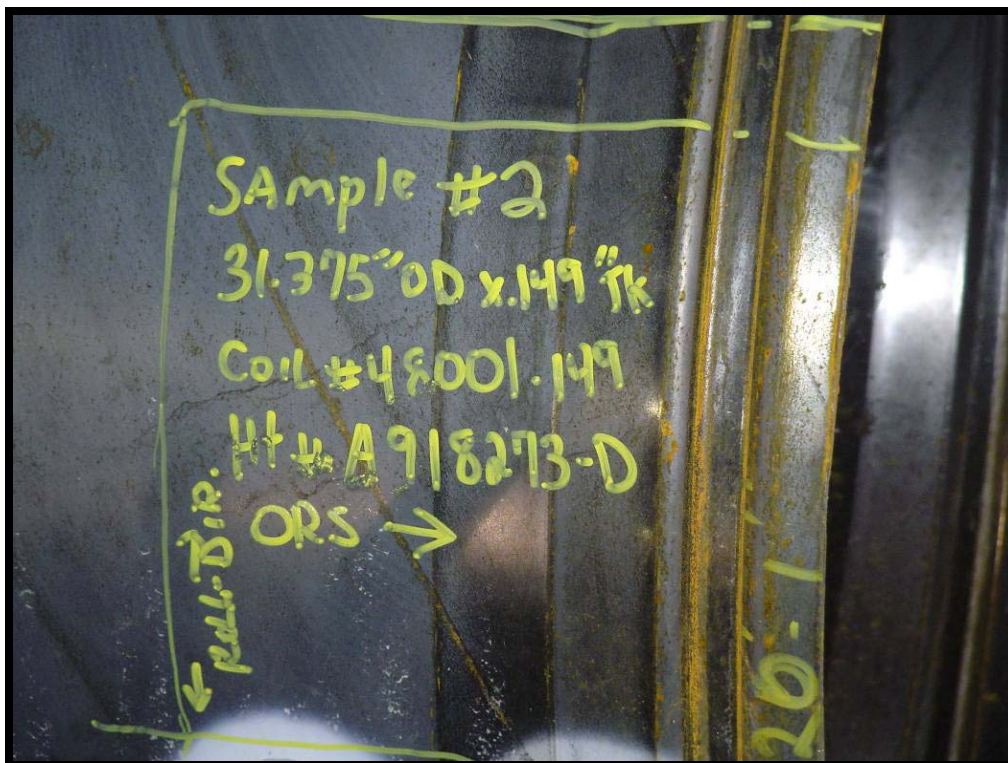 SAmple #2
31.375" OD x .149" Tk
Coil #48001.149
Ht # A918273-D
ORS →
← Roll. Dir.
26-1